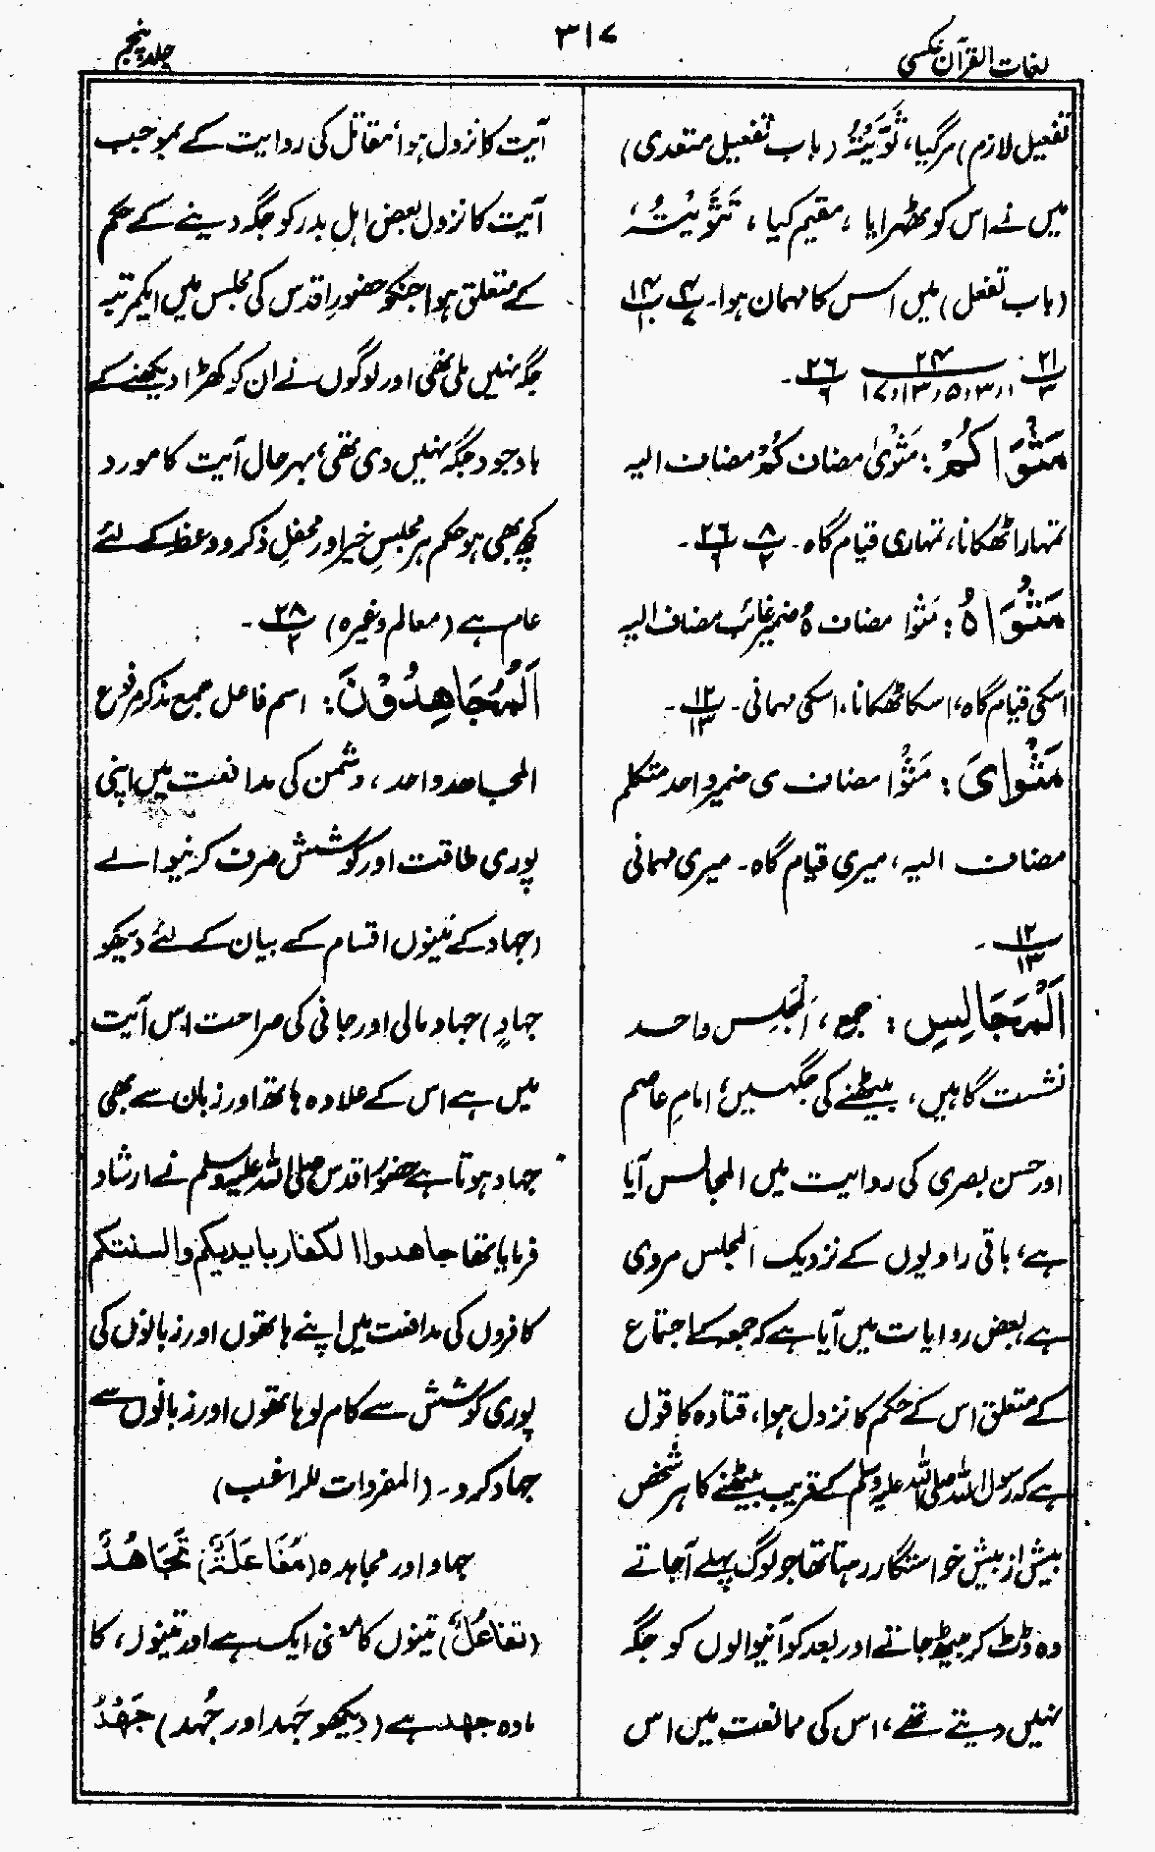 لغات القرآن عکسی
۳۱۷
جلد پنجم
تفعیل لازم) مرگیا، ثَوَّیْتُہٗ (باب تفعیل متعدی)
میں نے اس کو ٹھہرایا، مقیم کیا، تَثَوَّیْتُہٗ
(باب تفعل) میں اس کا مہمان ہوا۔ ۴/۷ ۱۴/۱۰
۲۱/۳ ۲۴/۱،۳،۵،۱۳،۱۷ ۲۶/۶۔
مَثْوَاکُمْ: مَثْویٰ مضاف کُمْ مضاف الیہ
تمہارا ٹھکانا، تمہاری قیام گاہ۔ ۸/۲ ۲۶/۶۔
مَثْوَاہُ: مَثْوا مضاف ہُ ضمیر غائب مضاف الیہ
اسکی قیام گاہ، اسکا ٹھکانا، اسکی مہمانی۔ ۱۲/۱۳۔
مَثْوَایَ: مَثْوا مضاف ی ضمیر واحد متکلم
مضاف الیہ، میری قیام گاہ۔ میری مہمانی
۱۲/۱۳۔
اَلْمَجَالِسِ: جمع، اَلْمَجْلِس واحد
نشست گاہیں، بیٹھنے کی جگہیں، امامِ عاصم
اور حسن بصری کی روایت میں المجالس آیا
ہے، باقی راویوں کے نزدیک المجلس مروی
ہے بعض روایات میں آیا ہے کہ جمعہ کے اجتماع
کے متعلق اس کے حکم کا نزول ہوا، قتادہ کا قول
ہے کہ رسول اللہ صلی اللہ علیہ وسلم کے قریب بیٹھنے کا ہر شخص
بیش از بیش خواستگار رہتا تھا جو لوگ پہلے آجاتے
وہ ڈٹ کر بیٹھ جاتے اور بعد کو آنیوالوں کو جگہ
نہیں دیتے تھے، اس کی ممانعت میں اس
آیت کا نزول ہوا، مقاتل کی روایت کے بموجب
آیت کا نزول بعض اہلِ بدر کو جگہ دینے کے حکم
کے متعلق ہوا جنکو حضورِ اقدس کی مجلس میں ایکمرتبہ
جگہ نہیں ملی تھی اور لوگوں نے ان کو کھڑا دیکھنے کے
باوجود جگہ نہیں دی تھی، بہرحال آیت کا مورد
کچھ بھی ہو حکم ہر مجلسِ خیر اور محفلِ ذکر ووعظ کے لئے
عام ہے (معالم وغیرہ) ۲۸/۲۔
اَلْمُجَاھِدُوْنَ: اسم فاعل جمع مذکر مرفوع
المجاھد واحد، دشمن کی مدافعت میں اپنی
پوری طاقت اور کوشش صرف کرنیوالے
(جہاد کے تینوں اقسام کے بیان کے لئے دیکھو
جہادٍ) جہاد مالی اور جانی کی صراحت اس آیت
میں ہے اس کے علاوہ ہاتھ اور زبان سے بھی
جہاد ہوتا ہے حضور اقدس صلی اللہ علیہ وسلم نے ارشاد
فرمایا تھا جاھدوا الکفار بایدیکم والسنتکم
کافروں کی مدافعت میں اپنے ہاتھوں اور زبانوں کی
پوری کوشش سے کام لو ہاتھوں اور زبانوں سے
جہاد کرو۔ (المفردات للراغب)
جہاد اور مجاہدہ (مُفَاعَلَۃٌ) تَجَاھُدٌ
(تفاعُلٌ) تینوں کا معنی ایک ہے اور تینوں کا
مادہ جھد ہے (دیکھو جَہد اور جُہد) جَھْدٌ